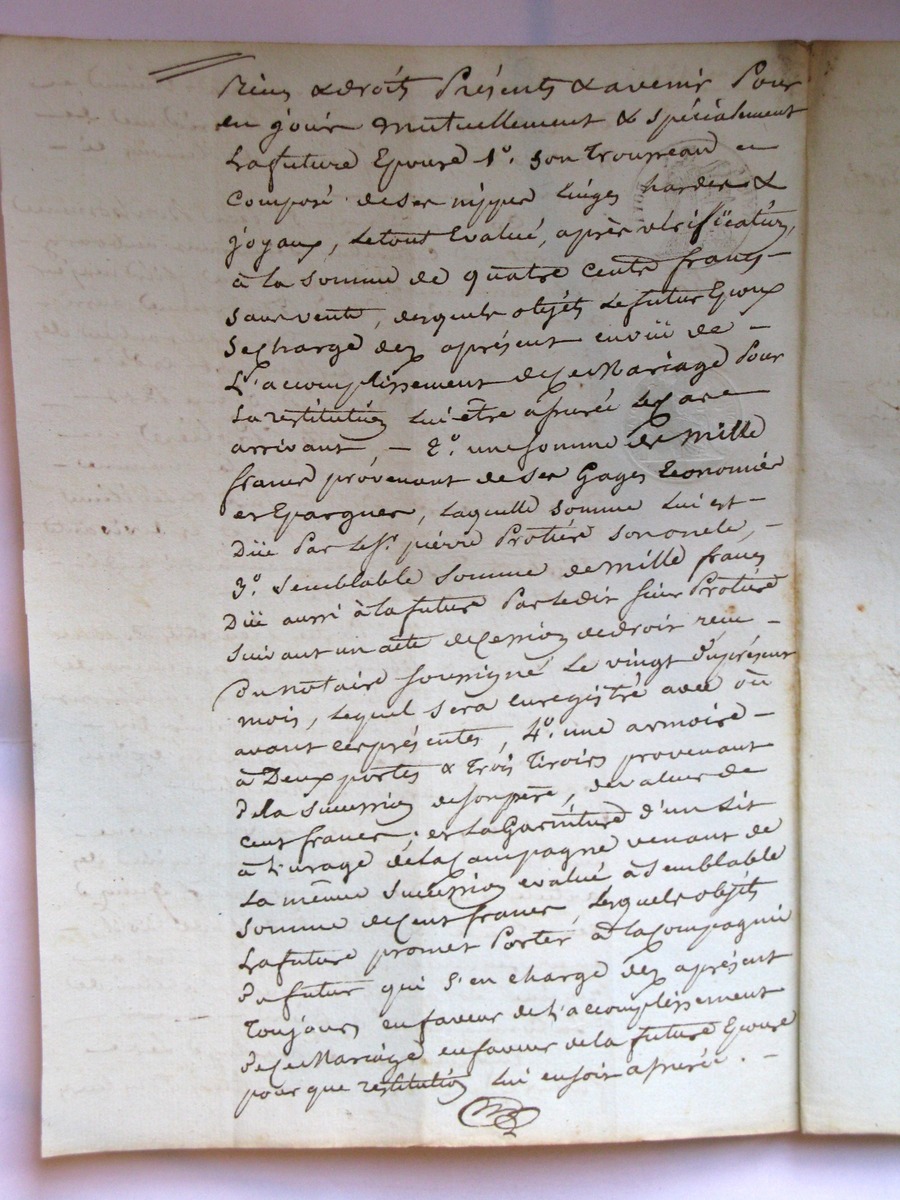 Biens & droits Présents & avenir Pour
en jouir mutuellement & spécialement
La future Epouse 1°. son trousseau en
Composé de ses nippes Linges hardes &
joyaux, Le tout Evalué, après vérification,
à la somme de quatre cents francs —
sans vente, desquels objets Le futur Epoux
Se charge dez aprésent en vüe de —
L'accomplissement de ce Mariage Pour
La restitution lui être assurée Le cas
arrivant, — 2°. une somme de mille
francs provenant de ses Gages Economies
et Epargnes, Laquelle somme Lui est —
Düe Par le Sr. pierre Protière son oncle, —
3°. Semblable somme de mille francs
Düe aussi à La future Par le dit Sieur Protière
suivant un acte de cession de droit reçu —
Du notaire soussigné Le vingt du présent
mois, Lequel sera enregistré avec où
avant ces présentes, 4°. une armoire —
à Deux portes & trois Tiroirs provenant
De la succession de son père, de valeur de
Cent francs; et La Garniture d'un Lit
à L'usage de La Campagne venant de
La même succession évalué à Semblable
Somme de Cent francs, Lesquels objets
La future promet Porter à La Compagnie
Du futur qui s'en charge dez aprésent
Toujours en faveur de L'accomplissement
De ce Mariage en faveur de la future Epouse
pour que restitution Lui en soit assurée. —